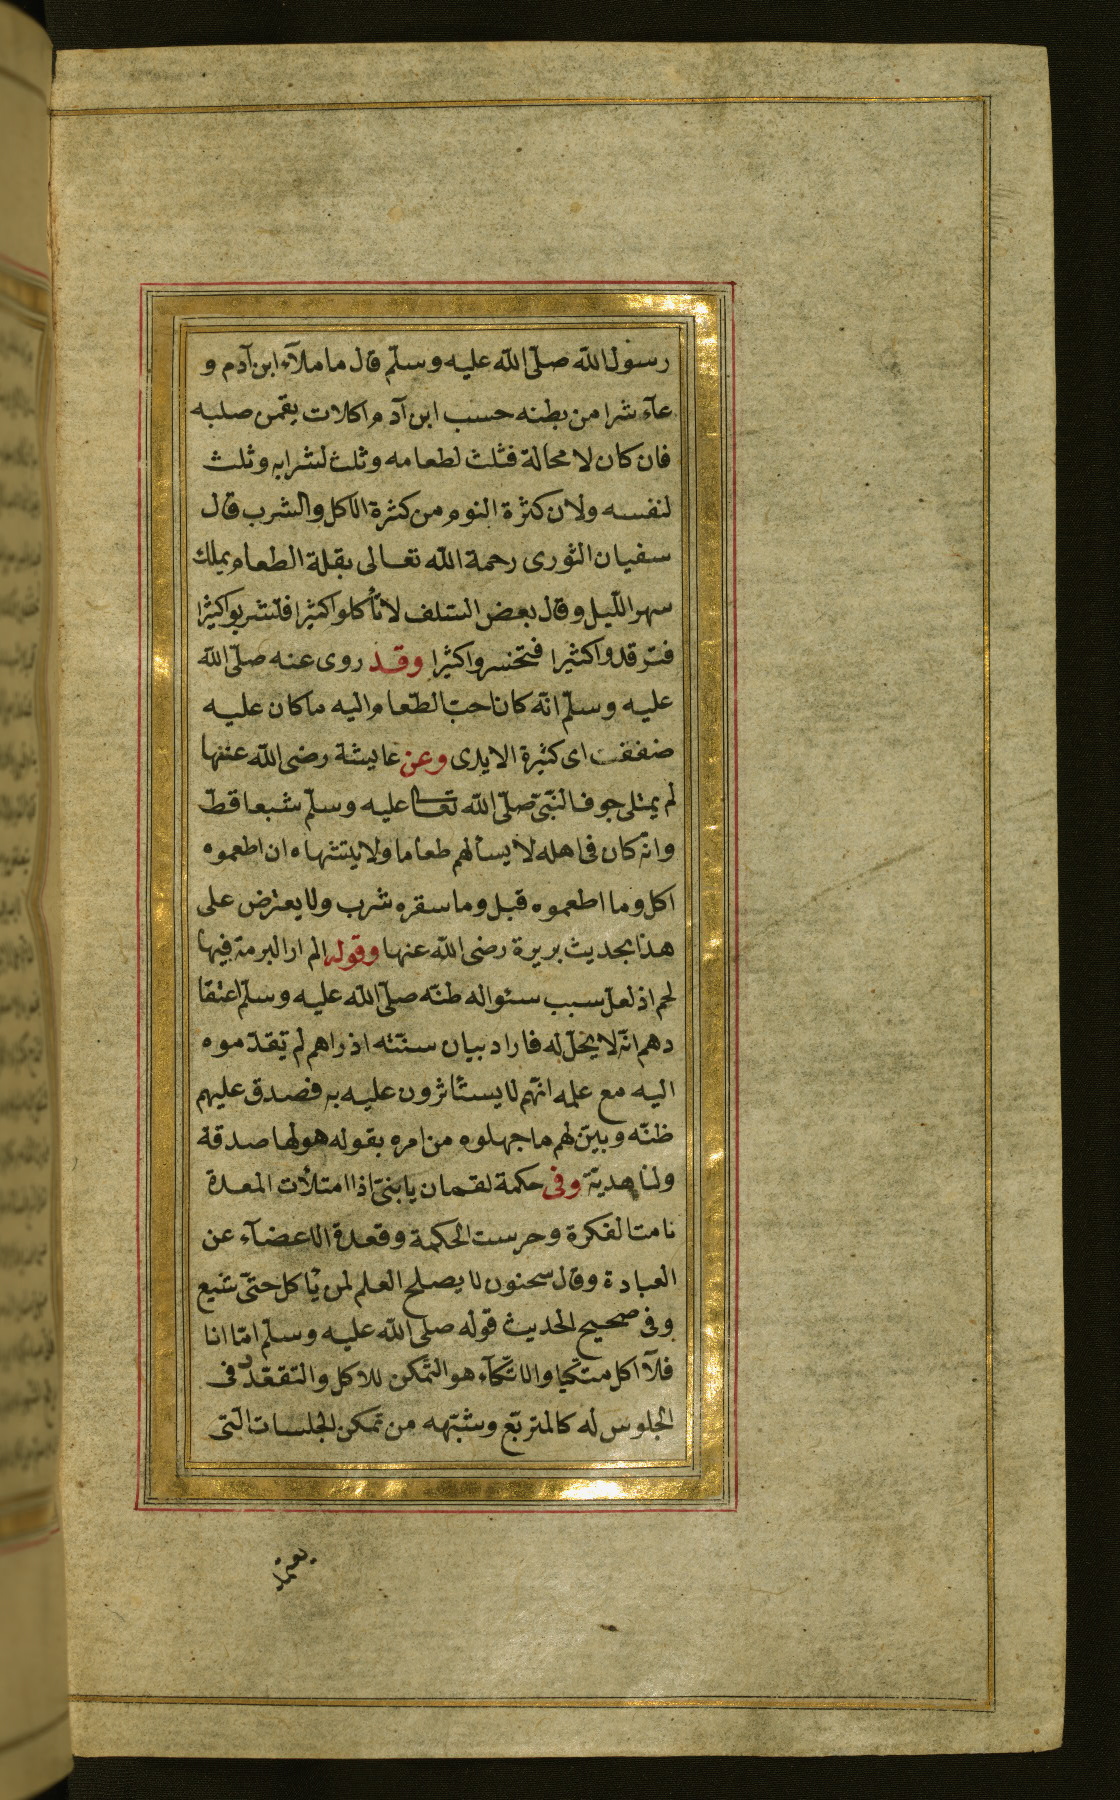 رسول الله صلّى الله عليه وسلّم قال ما ملآء ابن آدم و
عآء شرا من بطنه حسب ابن آدم اكلات يقمن صلبه
فان كان لا محالة فثلث لطعامه وثلث لشرابه وثلث
لنفسه ولان كثرة النوم من كثرة الاكل والشرب قال
سفيان الثورى رحمة الله تعالى بقلة الطعام يملك
سهر الليل وقال بعض السلف لا تأكلوا كثيرا فلتشربوا كثيرا
فترقدوا كثيرا فتخسروا كثيرا وقد روى عنه صلّى الله
عليه وسلّم انّه كان احبّ الطّعام اليه ما كان عليه
ضففت اى كثيرة الايدى وعن عايشة رضى الله عنها
لم يمتلى جوف النّبىّ صلّى الله تعالى عليه وسلّم شبعا قطّ
وانّه كان فى اهله لا يسألهم طعاما ولا يتشهاه ان اطعموه
اكل وما اطعموه قبل وما سقوه شرب ولا يعترض على
هذا بحديث بريرة رضى الله عنها وقوله الم ار البرمة فيها
لحم اذ لعل سبب سئواله ظنّه صلّى الله عليه وسلّم اعتقا
دهم انّه لا يحلّ له فاراد بيان سنّته اذ راهم لم يقدّموه
اليه مع علمه انّهم لا يستأثرون عليه به فصدق عليهم
ظنّه وبيّن لهم ما جهلوه من امره بقوله هو لها صدقة
ولنا هديّة وفى حكمة لقمان يا بنىّ اذا امتلأت المعدة
نامت الفكرة وخرست الحكمة وقعدة الاعضآء عن
العبادة وقال سحنون لا يصلح العلم لمن يأكل حتّى شبع
وفى صحيح الحديث قوله صلى الله عليه وسلّم امّا انا
فلآ اكل متكيا والاتّكآء هو التّمكن للاكل والتقعدد فى
الجلوس له كالمتربّع وشبّهه من تمكن الجلسات الّتى
يعتمد